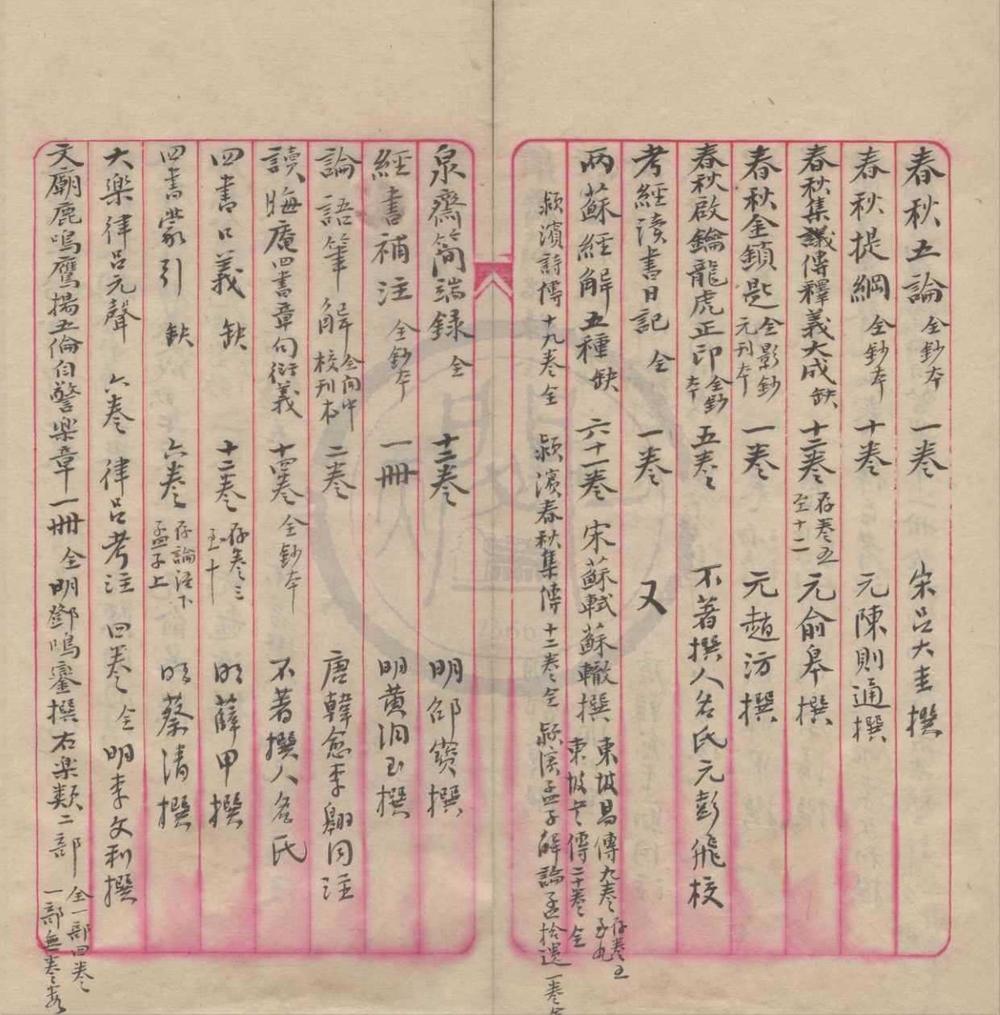 春秋五論 全鈔本 一卷 宋呂大圭撰
春秋提綱 全鈔本 十卷 元陳則通撰
春秋集議傳釋義大成 缺 十二卷 存卷五至十二 元俞皋撰
春秋金鎖匙 全影鈔元刊本 一卷 元趙汸撰
春秋啟鑰龍虎正印 全鈔本 五卷 不著撰人名氏元彭飛校
考經讀書日記 全 一卷 又
兩蘇經解五種 缺 六十一卷 宋蘇軾蘇轍撰 東坡易傳九卷存卷五至九 東坡書傳二十卷全
潁濱詩傳十九卷全 潁濱春秋集傳十二卷全 潁濱孟子解論孟拾遺一卷全
泉齋簡端録 全 十二卷 明邵寶撰
經書補注 全鈔本 一冊 明黃潤玉撰
論語筆解 全閩中校刊本 二卷 唐韓愈李翱同注
讀晦庵四書章句衍義 十四卷 全鈔本 不著撰人名氏
四書口義 缺 十二卷 存卷三至十 明薛甲撰
四書蒙引 缺 六卷 存論語下孟子上 明蔡清撰
大樂律呂元聲 六卷 律呂考注 四卷 全 明李文利撰
文廟鹿鳴鷹揚五倫自警樂章一冊 全 明鄧鳴鑾撰右樂類二部 全一部四卷一部無卷數